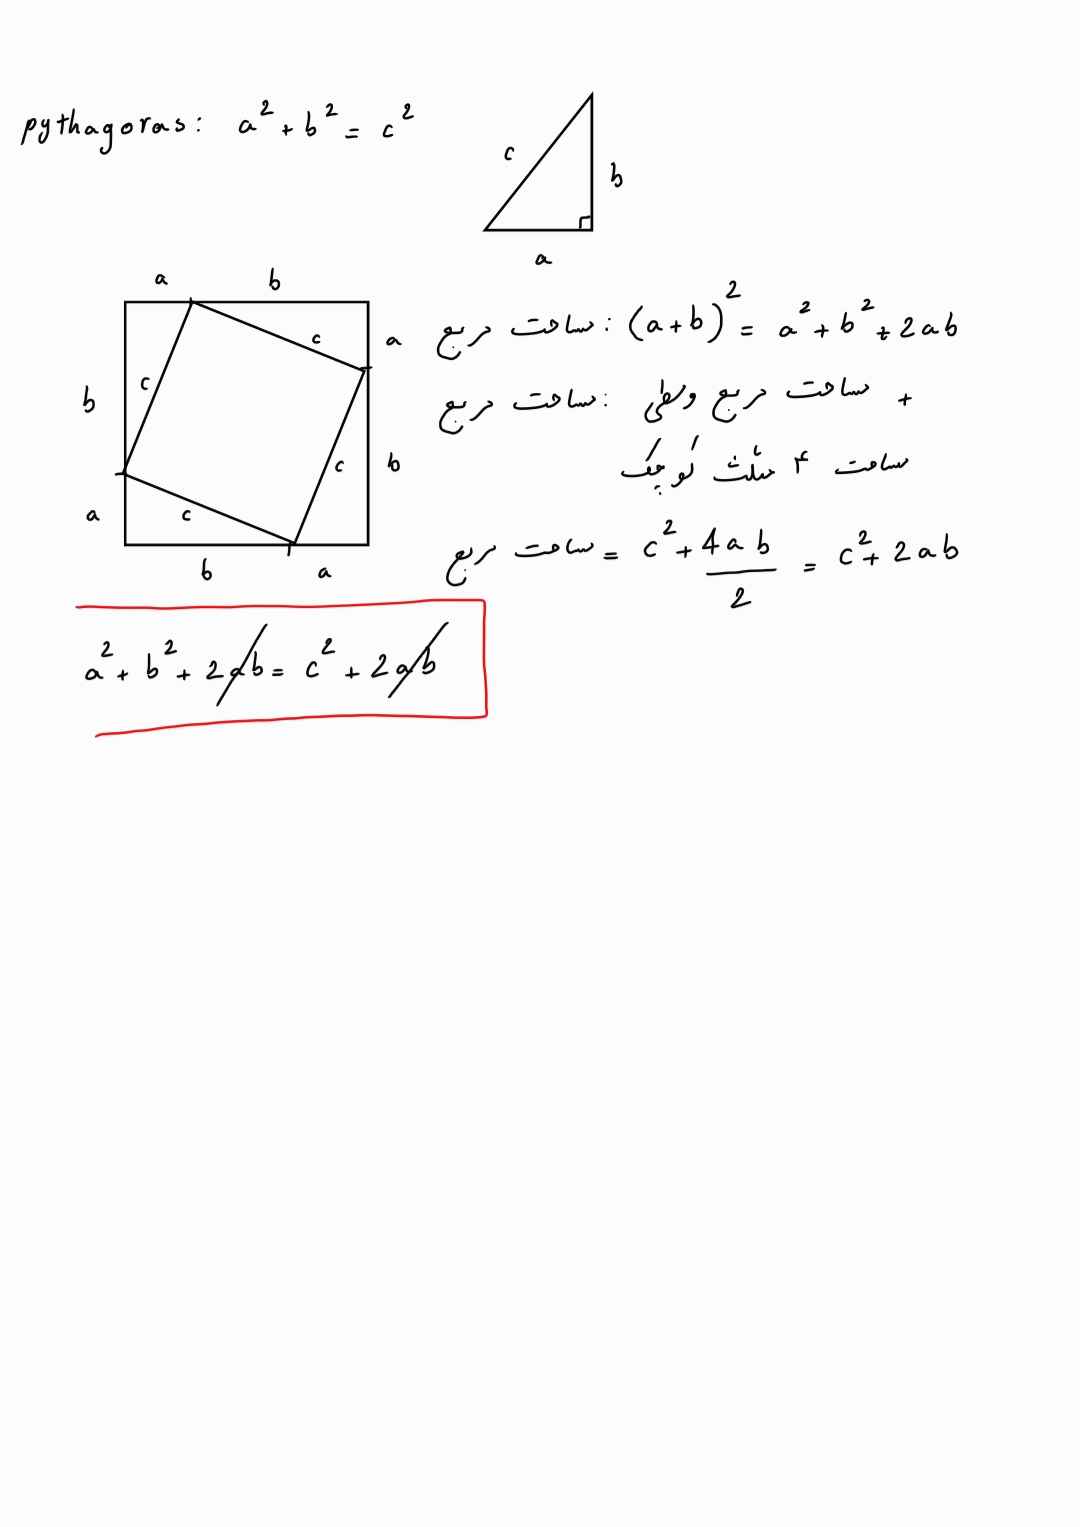 pythagoras: a² + b² = c²
c
b
a
a b
مساحت مربع : (a+b)² = a² + b² + 2ab
c
a
c
b
مساحت مربع : مساحت مربع وسطی +
مساحت ۴ مثلث کوچک
c
b
a
c
مساحت مربع = c² + 4ab/2 = c² + 2ab
b a
a² + b² + 2ab = c² + 2ab